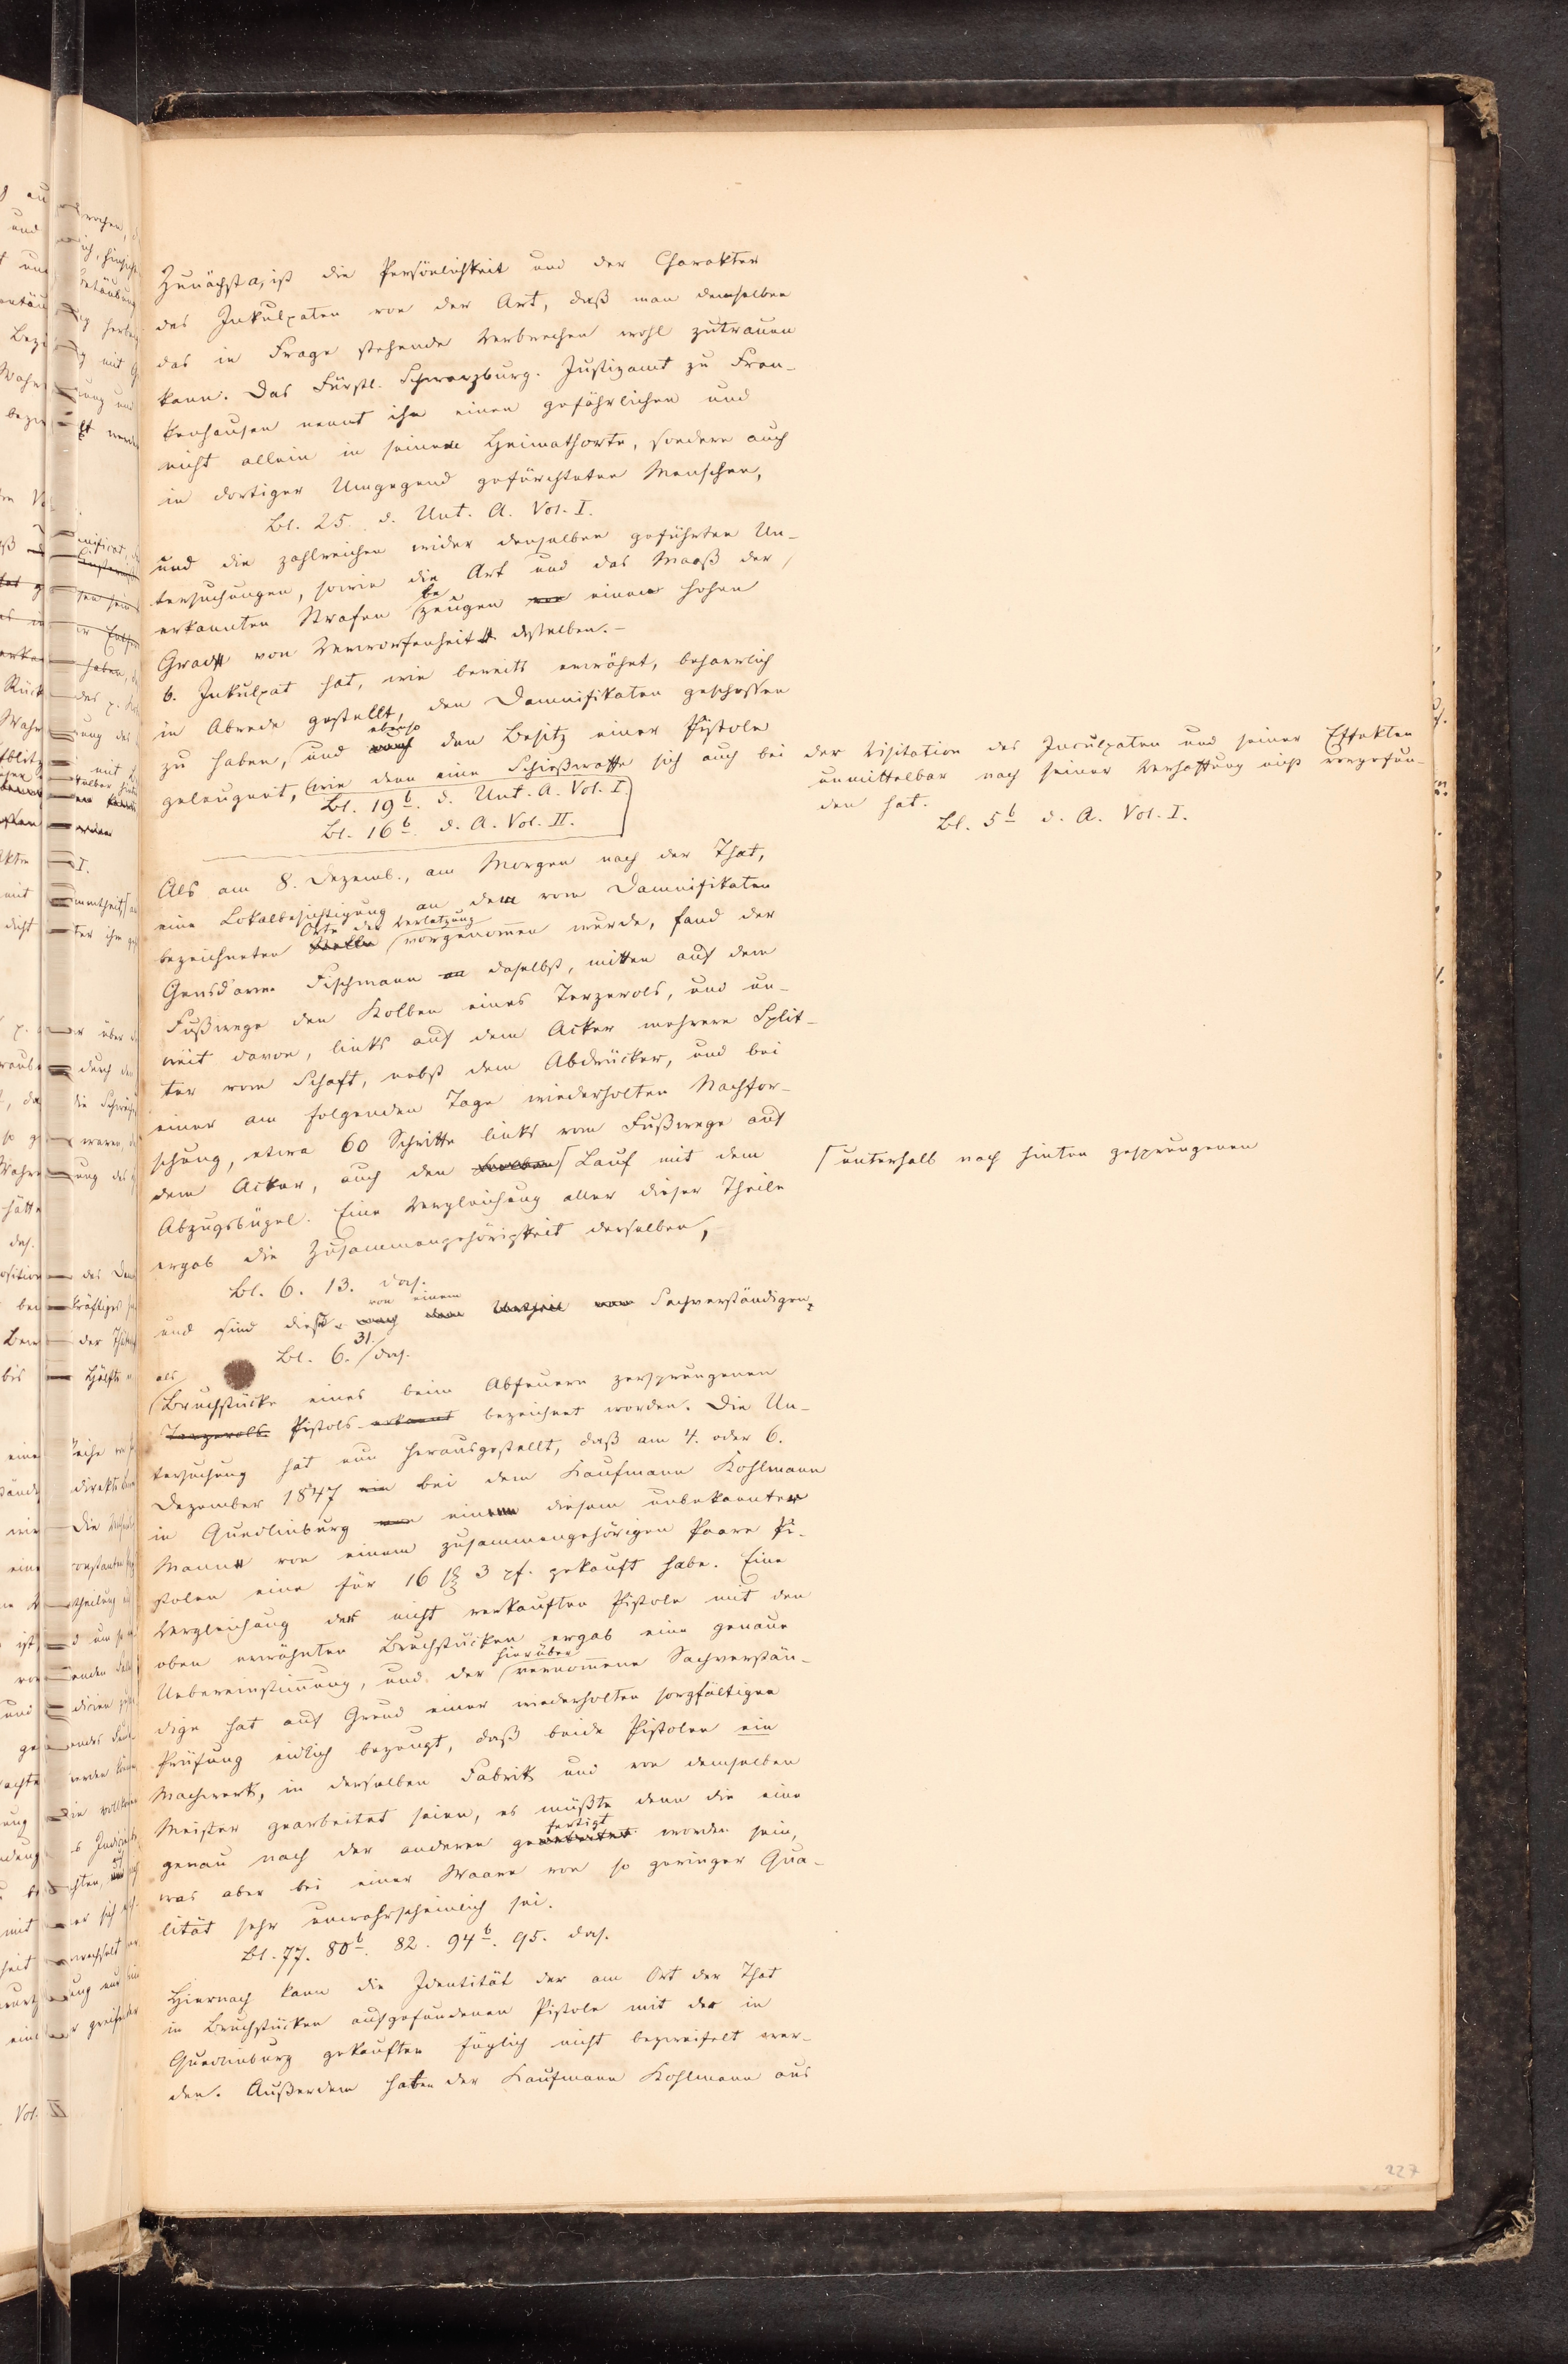 Zunächst a, ist die Persönlichkeit und der Charakter
des Inkulpaten von der Art, daß man demselben
das in Frage stehende Verbrechen wohl zutrauen
kann. Das Fürstl. Schwarzburg. Justizamt zu Fran-
kenhausen nennt ihn einen gefährlichen und
nicht allein in seinem Heimathsorte, sondern auch
in dortiger Umgegend gefürchteten Menschen,
Bl. 25. d. Unt. A. Vol. I.
und die zahlreichen wider denselben geführten Un-
tersuchungen, sowie die Art und das Maaß der
erkannten Strafen bezeugen von einem hohen
Grad von Verworfenheit desselben.-
b. Inkulpat hat, wie bereits erwähnt, beharrlich
in Abrede gestellt, den Damnifikaten geschossen
zu haben, und ebenso auch den Besitz einer Pistole
geleugnet, wie denn eine Schießwaffe sich auch bei der Visitation des Inculpaten und seiner Effekten
unmittelbar nach seiner Verhaftung nicht vorgefun-
den hat.
Bl. 5b d. A. Vol. I.
Bl. 19b. d. Unt. A. Vol. I.
Bl. 16b. d. A. Vol. II.
Als am 8. Dezemb., am Morgen nach der That,
eine Lokalbesichtigung an dem vom Damnifikaten
bezeichneten Stelle Orte der Verletzung vorgenommen wurde, fand der
Gensd'arm Fischmann an daselbst, mitten auf dem
Fußwege den Kolben eines Terzerols, und un-
weit davon, links auf dem Acker mehrere Split-
ter vom Schaft, nebst dem Abdrücker, und bei
einer am folgenden Tage wiederholten Nachfor-
schung, etwa 60 Schritte links vom Fußwege auf
dem Acker, auch den Kolben Lauf mit dem
unterhalb nach hinten gesprungenen
Abzugsbügel. Eine Vergleichung aller dieser Theile
ergab die Zusammengehörigkeit derselben,
Bl. 6. 13. das.
und sind diese nach dem Urtheil von einem Sachverständigen,
Bl. 6. 31. das.
als Bruchstücke eines beim Abfeuern zersprungenen
Terzerols Pistols erkannt bezeichnet worden. Die Un-
tersuchung hat nun herausgestellt, daß am 4. oder 6.
Dezember 1847 ein bei dem Kaufmann Kohlmann
in Quedlinburg von ein diesem unbekannter
Mann von einem zusammengehörigen Paare Pi-
stolen eine für 16 sg 3 pf. gekauft habe. Eine
Vergleichung der nicht verkauften Pistole mit den
oben erwähnten Bruchstücken ergab eine genaue
Uebereinstimmung, und der hierüber vernommene Sachverstän-
dige hat auf Grund einer wiederholten sorgfältigen
Prüfung eidlich bezeugt, daß beide Pistolen ein
Machwerk, in derselben Fabrik und von demselben
Meister gearbeitet seien, es müßte denn die eine
genau nach der anderen gearbeitet fertigt worden sein,
was aber bei einer Waare von so geringer Qua-
lität sehr unwahrscheinlich sei.
Bl. 77. 80b. 82. 94b. 95. das.
Hiernach kann die Identität der am Ort der That
in Bruchstücken aufgefundenen Pistole mit der in
Quedlinburg gekauften füglich nicht bezweifelt wer-
den. Außerdem haben der Kaufmann Kohlmann aus
227